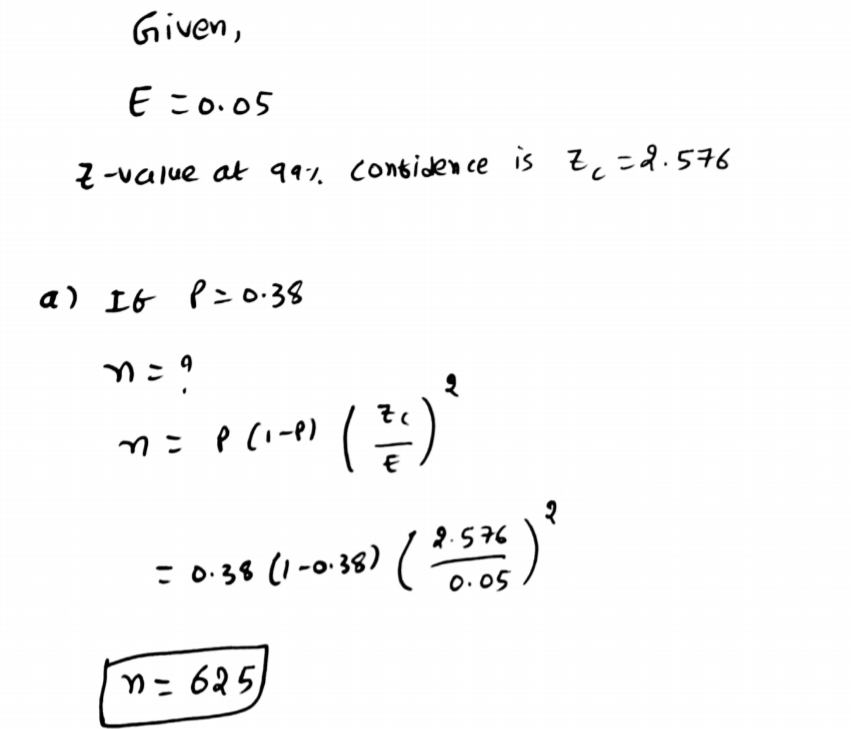 Given,
E = 0.05
Z-value at 99% confidence is Z_c = 2.576
a) If P = 0.38
n = ?
n = P (1-P) (Z_c / E)^2
= 0.38 (1-0.38) (2.576 / 0.05)^2
n = 625